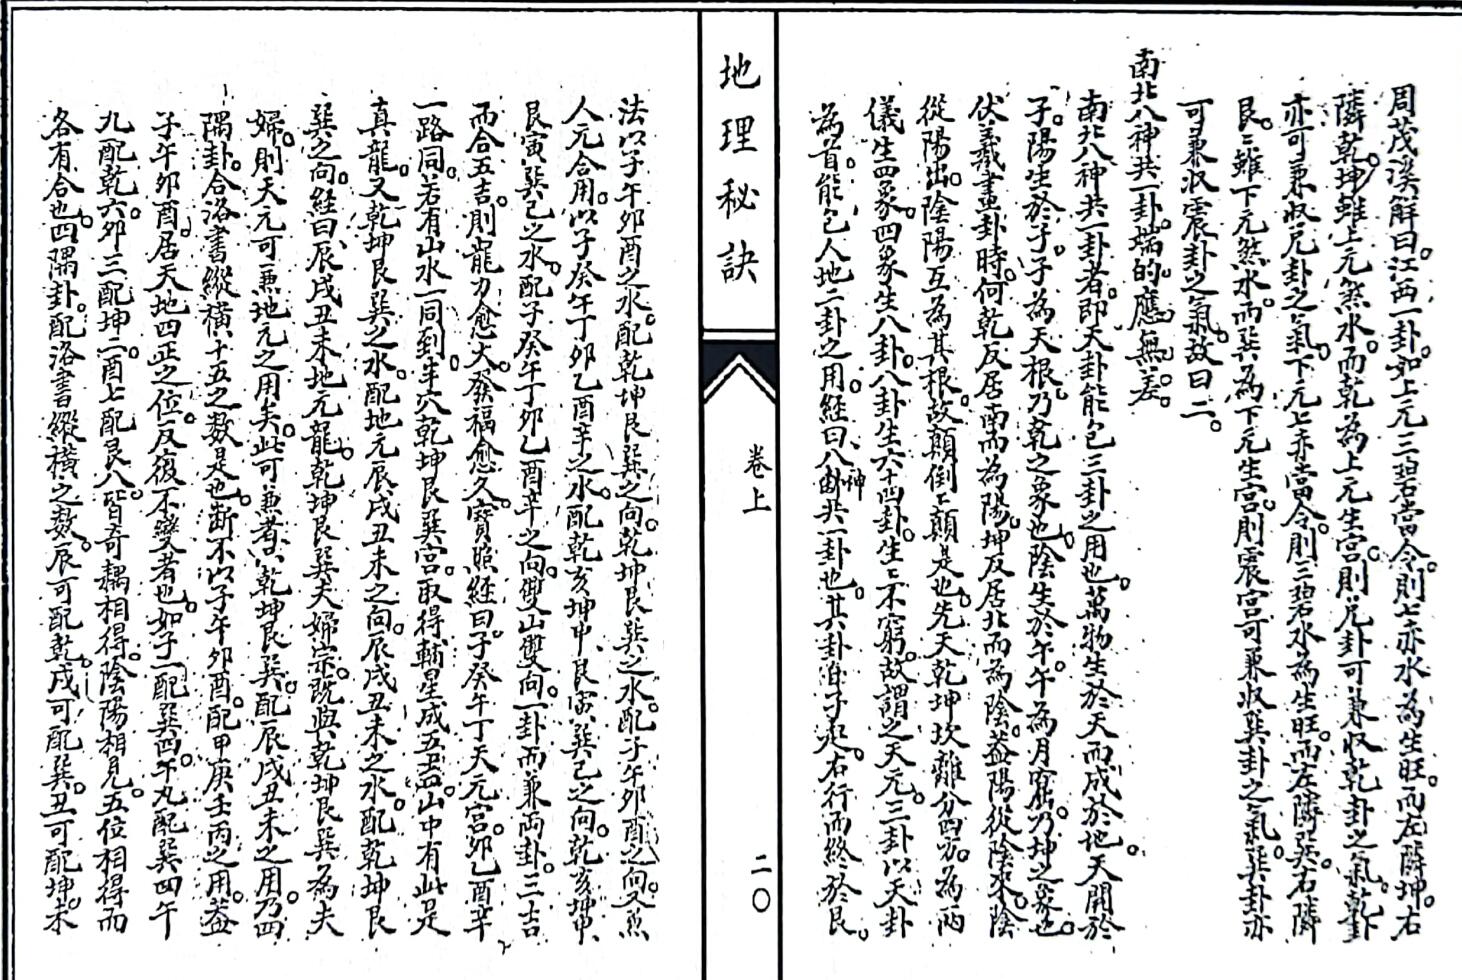 周茂溪解曰。江西一卦。如上元三碧當令。則七赤水為生旺。而左隣坤。右
隣乾。坤雖上元煞水。而乾為上元生宮。則兌卦可兼收乾卦之氣。乾卦
亦可兼收兌卦之氣。下元七赤當令。則三碧水為生旺。而左隣巽。右隣
艮。艮雖下元煞水。而巽為下元生宮。則震宮可兼收巽卦之氣。巽卦亦
可兼收震卦之氣。故曰二。
南北八神共一卦。端的應無差。
南北八神共一卦者。即天卦能包三卦之用也。萬物生於天而成於地。天開於
子。陽生於子。子為天根。乃乾之象也。陰生於午。午為月窟。乃坤之象也。
伏羲畫卦時。何乾反居南而為陽。坤反居北而為陰。蓋陽從陰來。陰
從陽出。陰陽互為其根。故顛倒顛是也。先天乾坤坎離分四方。為兩
儀生四象。四象生八卦。八卦生六十四卦。生生不窮。故謂之天元。三卦以天卦
為首。能包人地二卦之用。經曰八神共一卦也。其卦自子起。右行而終於艮。
地理秘訣
卷上
二〇
法以子午卯酉之水。配乾坤艮巽之向。乾坤艮巽之水。配子午卯酉之向。又無
人元合用。以子癸午丁卯乙酉辛之水。配乾亥坤申艮寅巽巳之向。乾亥坤申
艮寅巽巳之水。配子癸午丁卯乙酉辛之向。雙山雙向。一卦而兼兩卦。三吉
而合五吉。則龍力愈大。發福愈久。寶照經曰。子癸午丁天元宮。卯乙酉辛
一路同。若有山水一同到。半穴乾坤艮巽宮。取得輔星成五吉。山中有此是
真龍。又乾坤艮巽之水。配地元辰戌丑未之向。辰戌丑未之水。配乾坤艮
巽之向。經曰。辰戌丑未地元龍。乾坤艮巽夫婦宗。既與乾坤艮巽為夫
婦。則天元可兼地元之用矣。此可兼者。以乾坤艮巽。配辰戌丑未之用。乃四
隅卦。合洛書縱橫十五之數是也。斷不以子午卯酉。配甲庚壬丙之用。蓋
子午卯酉。居天地四正之位。反復不變者也。如子一配巽四。午九配巽四午
九配乾六。卯三配坤二。酉七配艮八。皆奇耦相得。陰陽相見。五位相得而
各有合也。四隅卦。配洛書縱橫之數。辰可配乾。戌可配巽。丑可配坤。未